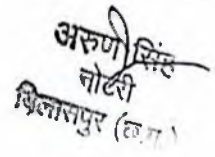 अरुण सिंह
नोटरी
बिलासपुर (छ.ग.)